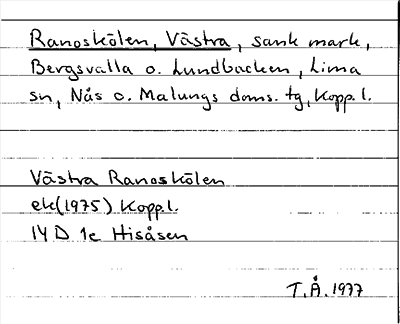 Ranoskölen, Västra, sank mark,
Bergsvalla o. Lundbacken, Lima
sn, Nås o. Malungs doms. tg, Kopp. l.
Västra Ranoskölen
ek(1975) Kopp. l.
14 D 1e Hisåsen
T.Å. 1977